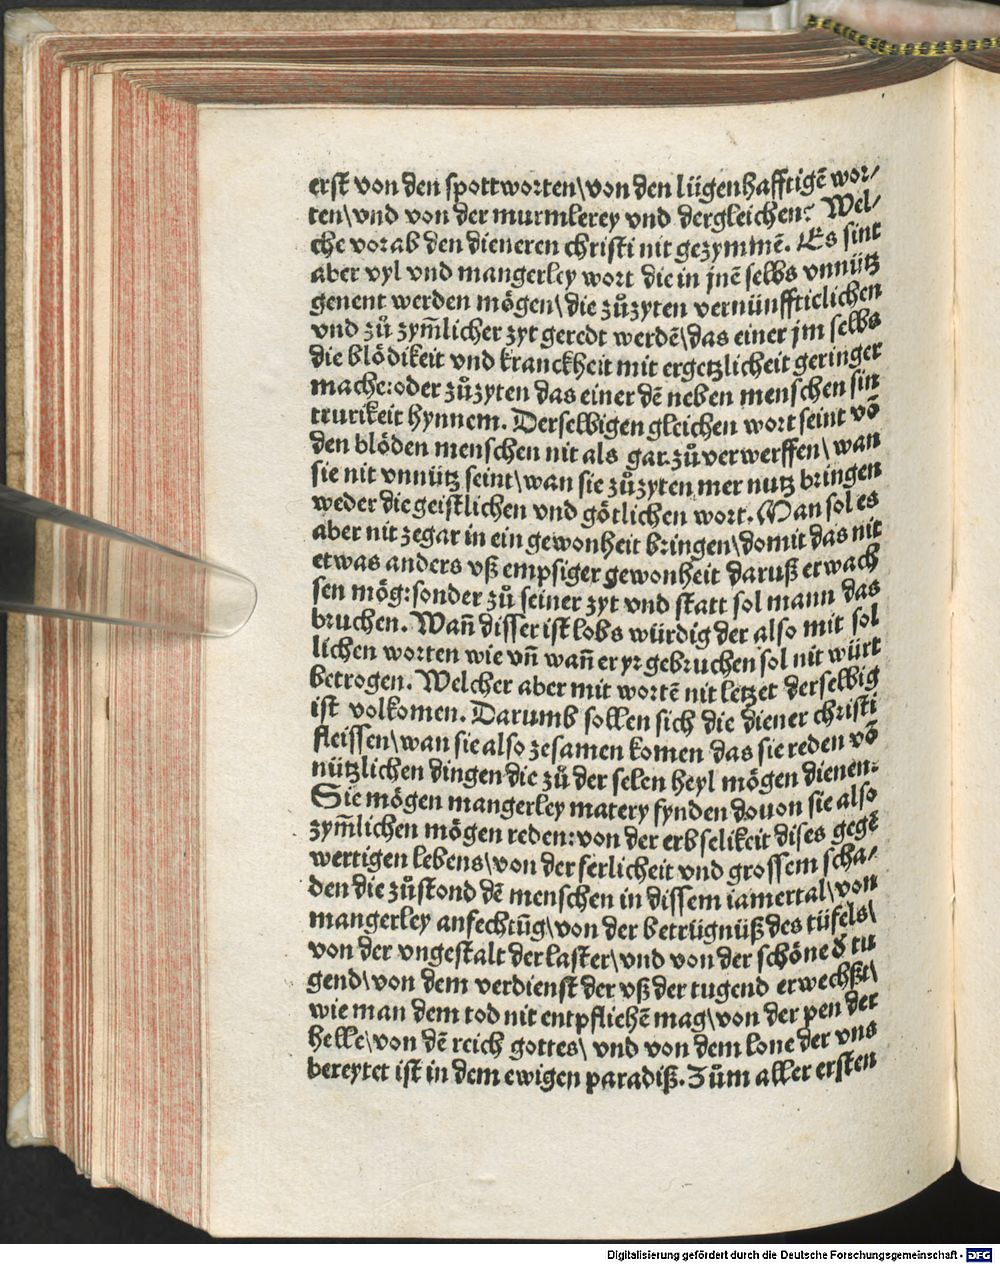 erst von den spottworten\von den lügenhafftigē wor⸗
ten\vnd von der murmlerey vnd dergleichen: Wel⸗
che vorab den dieneren christi nit gezymmē. Es sint
aber vyl vnd mangerley wort die in jnē selbs vnnütz
genent werden mögen\die zůzyten vernünffticlichen
vnd zů zym̄licher zyt geredt werdē\das einer jm selbs
die blödikeit vnd kranckheit mit ergetzlicheit geringer
mache:oder zůzyten das einer dē neben menschen sin
trurikeit hynnem. Derselbigen gleichen wort seint vō
den blöden menschen nit als gar.zůverwerffen\ wan
sie nit vnnütz seint\wan sie zůzyten mer nutz bringen
weder die geistlichen vnd götlichen wort. Man sol es
aber nit zegar in ein gewonheit bringen\domit das nit
etwas anders vß empsiger gewonheit daruß erwach
sen mög:sonder zů seiner zyt vnd statt sol mann das
bruchen. Wan̄ disser ist lobs würdig der also mit sol
lichen worten wie vn̄ wan̄ er yr gebruchen sol nit würt
betrogen. Welcher aber mit wortē nit letzet derselbig
ist volkomen. Darumb sollen sich die diener christi
fleissen\wan sie also zesamen komen das sie reden vō
nützlichen dingen die zů der selen heyl mögen dienen:
Sie mögen mangerley matery fynden douon sie also
zym̄lichen mögen reden:von der erbselikeit dises gegē
wertigen lebens\von der ferlicheit vnd grossem scha⸗
den die zůstond dē menschen in dissem iamertal\von
mangerley anfechtūg\von der betrügnüß des tüfels\
von der vngestalt der laster\vnd von der schöne d̛ tu
gend\von dem verdienst der vß der tugend erwechßt\
wie man dem tod nit entpfliehē mag\von der pen der
helle\von dē reich gottes\ vnd von dem lone der vns
bereytet ist in dem ewigen paradiß. Zům aller ersten
Digitalisierung gefördert durch die Deutsche Forschungsgemeinschaft - DFG